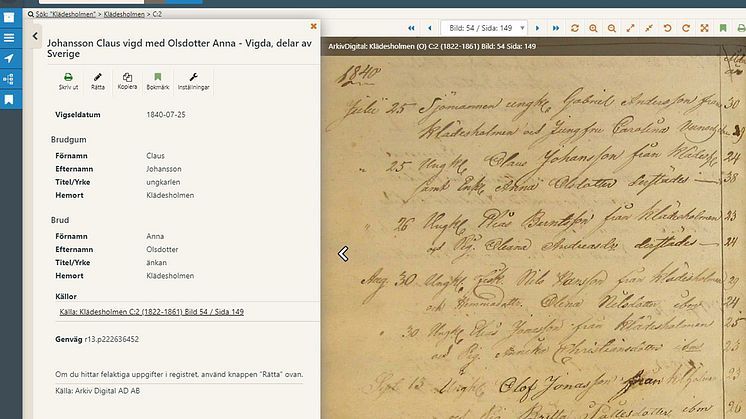 Sök: "Klädesholmen" > Klädesholmen > C:2
Johansson Claus vigd med Olsdotter Anna - Vigda, delar av
Sverige
Skriv ut Rätta Kopiera Bokmärk Inställningar
Vigseldatum 1840-07-25
Brudgum
Förnamn Claus
Efternamn Johansson
Titel/Yrke ungkarlen
Hemort Klädesholmen
Brud
Förnamn Anna
Efternamn Olsdotter
Titel/Yrke änkan
Hemort Klädesholmen
Källor
Källa: Klädesholmen C:2 (1822-1861) Bild 54 / Sida 149
Genväg r13.p222636452
Om du hittar felaktiga uppgifter i registret, använd knappen "Rätta" ovan.
Källa: Arkiv Digital AD AB
Bild: 54 / Sida: 149
ArkivDigital: Klädesholmen (O) C:2 (1822-1861) Bild: 54 Sida: 149
1840
Julii 25 Sjömannen ungk. Gabriel Andersson från 30
Klädesholmen och Jungfru Carolina
" 25 Ungk. Claus Johansson från Klädesh. 24
samt Enk. Anna Olsdotter derstädes 38
" 26 Ungk. Berntsson från Klädesholmen 23
och Pig. Andreasdr derstädes 24
Aug. 30 Ungk. fisk. Nils Hansson från Klädesholmen
och Hemmadottr. Olena Nilsdotter ibm 24
" 30 Ungk. Jonasson från Klädesholmen 25
och Pig. Christiansdotter ibm 23
Sept. 13 Ungk. Olof Jonasson från 23